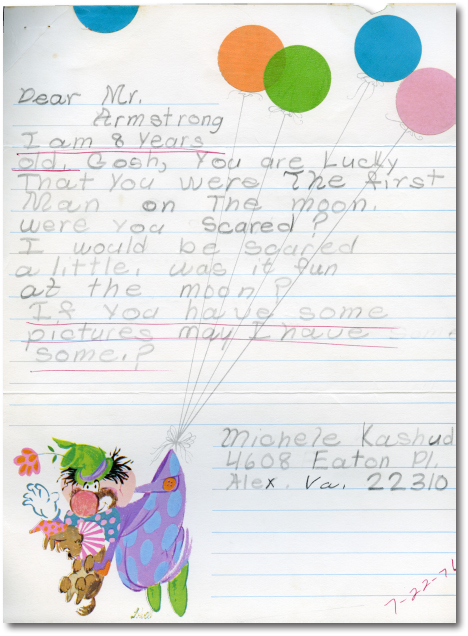 Dear Mr.
Armstrong
I am 8 years
old. Gosh, You are Lucky
That you were The first
Man on The moon.
were you scared?
I would be scared
a little. was it fun
at the moon?
If you have some
pictures may I have
some.?
Michele Kashud
4608 Eaton Pl.
Alex. Va. 22310